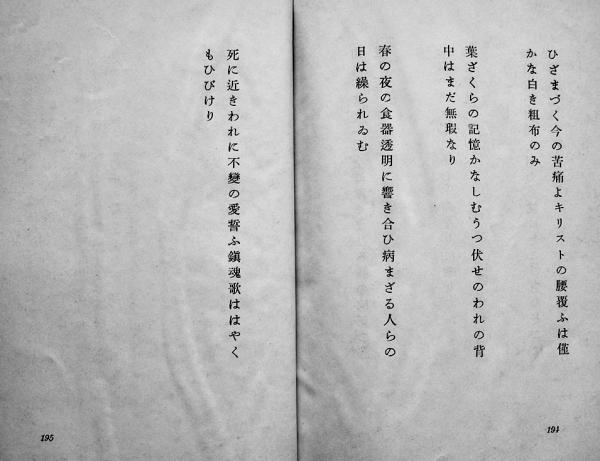 ひざまづく今の苦痛よキリストの腰覆ふは僅
かな白き粗布のみ
葉ざくらの記憶かなしむうつ伏せのわれの背
中はまだ無瑕なり
春の夜の食器透明に響き合ひ病まざる人らの
日は繰られゐむ
194
死に近きわれに不變の愛誓ふ鎭魂歌ははやく
もひびけり
195